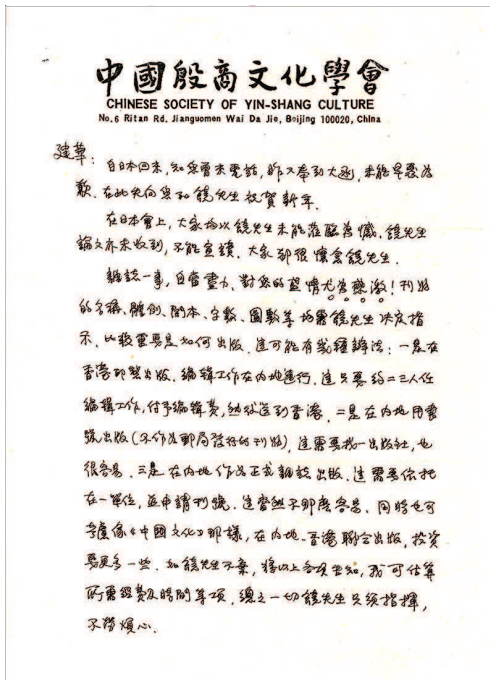 中國殷商文化學會
CHINESE SOCIETY OF YIN-SHANG CULTURE
No.6 Ritan Rd. Jianguomen Wai Da Jie, Beijing 100020, China
建華：自日本回来，知您曾来電話，昨又奉到大函，未能早覆為
歉。在此先向您和饒先生祝賀新年。
在日本會上，大家均以饒先生未能蒞臨為憾，饒先生
論文亦未收到，不能宣讀。大家都很懷念饒先生。
雜誌一事，自當盡力，對您的盛情尤為感激！刊物
的名稱、體例、開本、字數、圖數等均需饒先生决定指
示，比較重要是如何出版。這可能有幾種辦法：一是在
香港印製出版，編輯工作在内地進行，這只要約二三人任
編輯工作，付予編輯費，然後送到香港。二是在内地用書
號出版（不作為郵局發行的刊物），這需要找一出版社，也
很容易。三是在内地作為正式雜誌出版，這需要依托
在一單位，並申請刊號，這當然不那麽容易。同時也可
考慮像《中國文化》那樣，在内地、香港聯合出版，投資
要更多一些。如饒先生不棄，將以上各項告知，我可估算
所需經費及時間等項。總之一切饒先生只須指揮，
不勞煩心。